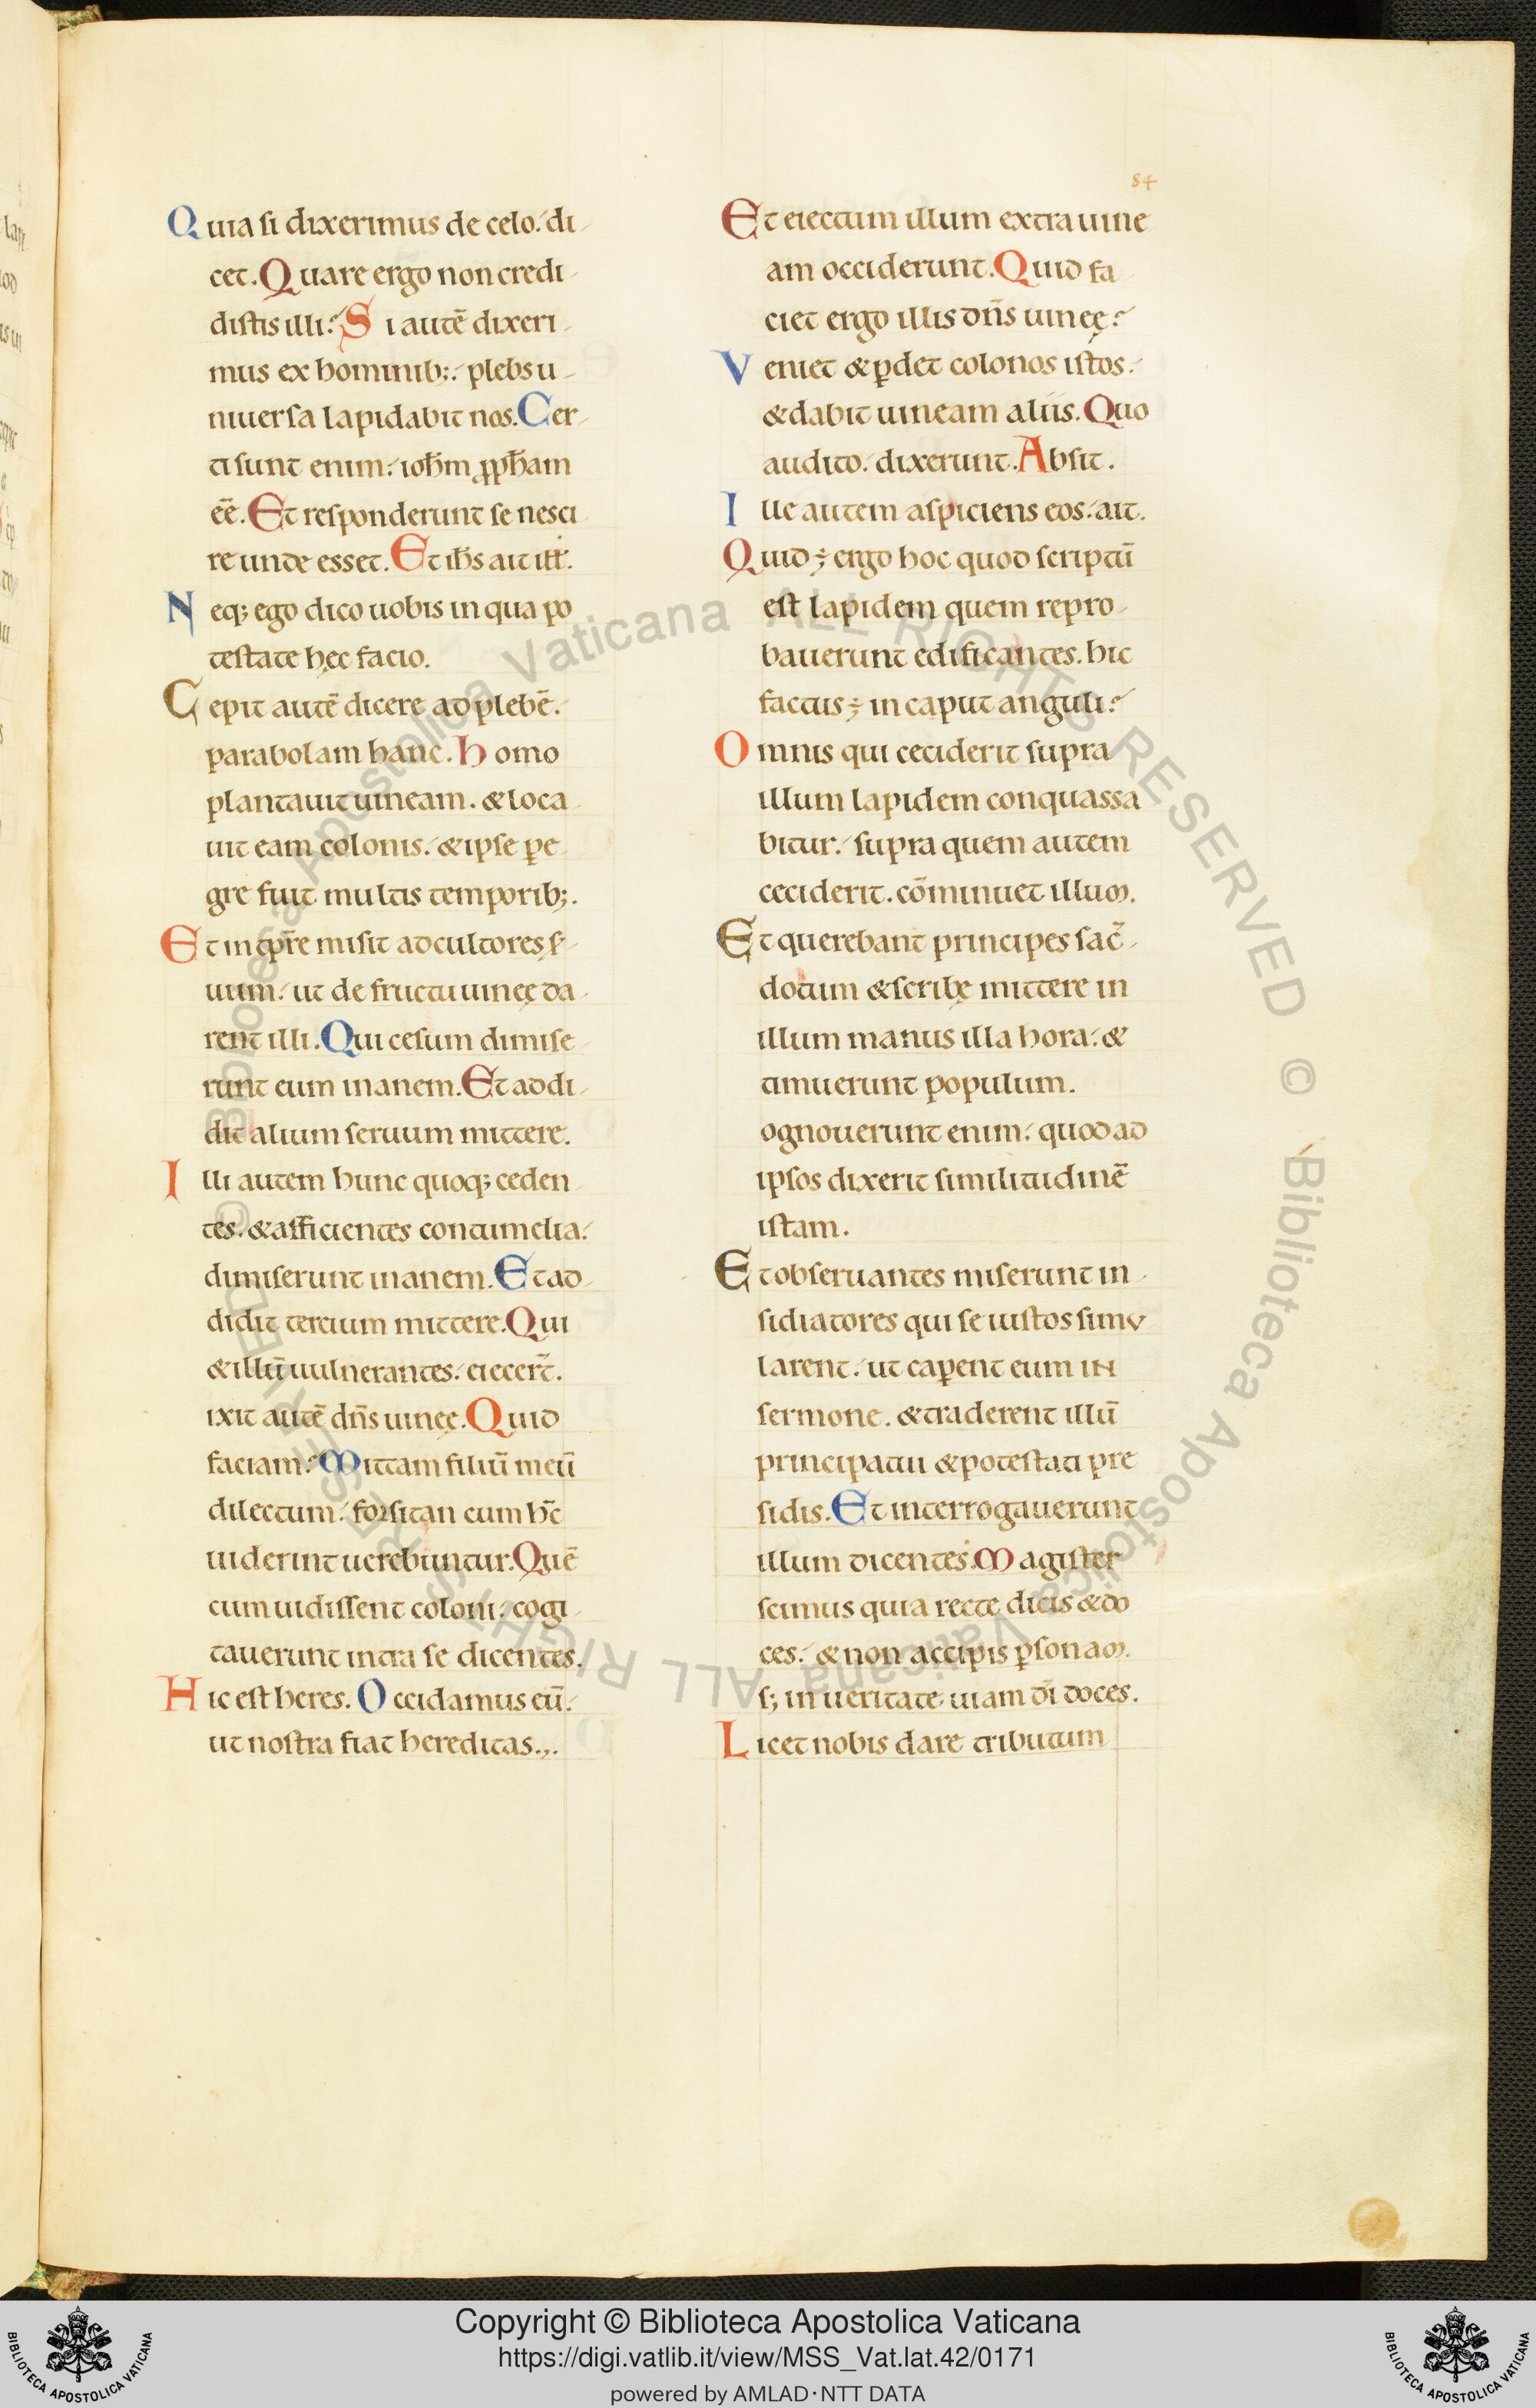 84
Quia si dixerimus de celo. di-
cet. Quare ergo non credi-
distis illi? Si autē dixeri-
mus ex hominib;. plebs u-
niuersa lapidabit nos. Cer-
ti sunt enim. ioh̄m ꝓph̄am
eē. Et responderunt se nesci-
re unde esset. Et ih̄s ait ill̵.
Neq; ego dico uobis in qua po
testate hęc facio.
Cepit autē dicere ad plebē.
parabolam hanc. Homo
plantauit uineam. & loca-
uit eam colonis. & ipse ꝑe-
gre fuit multis temporib;.
Et in tp̄re misit ad cultores s̄-
uum. ut de fructu uineę da-
rent illi. Qui cesum dimise-
runt eum inanem. Et addi-
dit alium seruum mittere.
Illi autem hunc quoq; ceden
tes. & afficientes contumelia.
dimiserunt inanem. Et ad-
didit tercium mittere. Qui
& illū uulnerantes. eiecer̄t.
ixit autē dn̄s uineę. Quid
faciam? Mittam filiū meū
dilectum. forsitan cum hc̄
uiderint uerebuntur. Quē
cum uidissent coloni. cogi-
tauerunt intra se dicentes.
Hic est heres. Occidamus eū.
ut nostra fiat hereditas.,.
Et eiectum illum extra uine
am occiderunt. Quid fa-
ciet ergo illis dn̄s uineę?
Veniet & ꝑdet colonos istos.
& dabit uineam aliis. Quo
audito. dixerunt. Absit.
Ille autem aspiciens eos. ait.
Quid ÷ ergo hoc quod scriptū
est lapidem quem repro-
bauerunt edificantes. hic
factus ÷ in caput anguli?
Omnis qui ceciderit supra
illum lapidem conquassa
bitur. supra quem autem
ceciderit. cōminuet illum.
Et querebant principes sac̄-
dotum & scribę mittere in
illum manus illa hora. &
timuerunt populum.
ognouerunt enim. quod ad
ipsos dixerit similitudinē
istam.
Et obseruantes miserunt in-
sidiatores qui se iustos simu
larent. ut caꝑent eum in
sermone. & traderent illū
principatui & potestati pre
sidis. Et interrogauerunt
illum dicentes. Magister
scimus quia recte dicis & do
ces. & non accipis ꝑsonam.
s; in ueritate uiam dī doces.
Licet nobis dare tributum
Copyright © Biblioteca Apostolica Vaticana
https://digi.vatlib.it/view/MSS_Vat.lat.42/0171
powered by AMLAD·NTT DATA
BIBLIOTECA APOSTOLICA VATICANA
BIBLIOTECA APOSTOLICA VATICANA
© Biblioteca Apostolica Vaticana ALL RIGHTS RESERVED
© Biblioteca Apostolica Vaticana ALL RIGHTS RESERVED